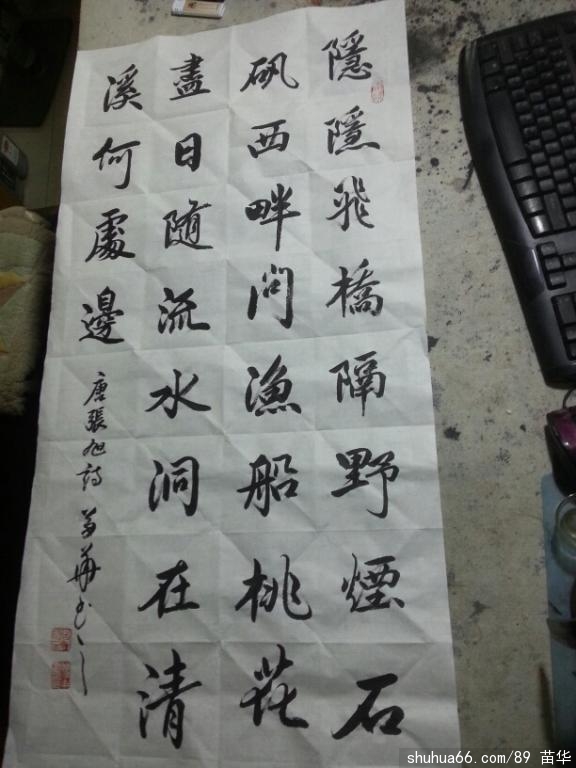 隱隱飛橋隔野煙石
矶西畔问渔船桃花
盡日随流水洞在清
溪何處邊
唐張旭詩 苗華书
shuhua66.com/89 苗华